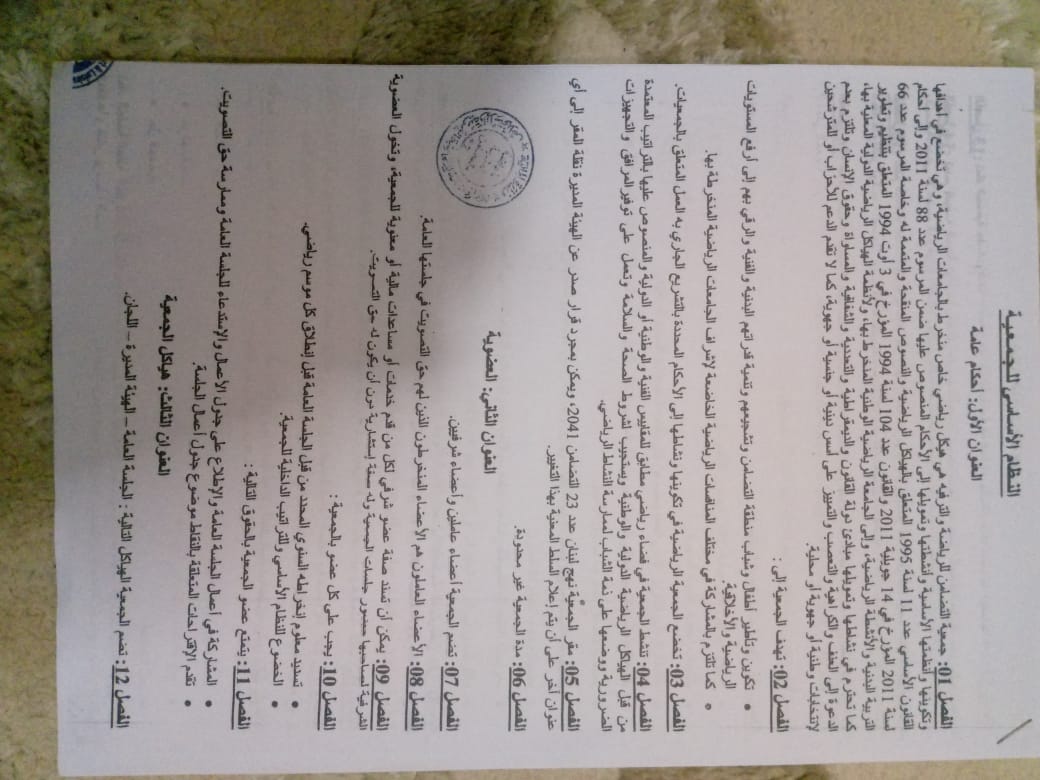 النظام الأساسي للجمعية
العنوان الأول: أحكام عامة
الفصل 01: جمعية التضامن للرياضة والترفيه هي هيكل رياضي خاص منخرط بالجامعات الرياضية، وهي تخضع في أهدافها
وتكوينها وأنظمتها الأساسية وأنشطتها وتمويلها إلى الأحكام المنصوص عليها ضمن المرسوم عدد 88 لسنة 2011 وإلى أحكام
القانون الأساسي عدد 11 لسنة 1995 المتعلق بالهياكل الرياضية والنصوص المنقحة والمتممة له وخاصة المرسوم عدد 66
لسنة 2011 المؤرخ في 14 جويلية 2011 والقانون عدد 104 لسنة 1994 المؤرخ في 3 أوت 1994 المتعلق بتنظيم وتطوير
التربية البدنية والأنشطة الرياضية، وإلى الجامعة الرياضية الوطنية المنخرط بها، ولأنظمة الهياكل الرياضية الدولية المعنية بها،
كما تحترم في نشاطها وتمويلها مبادئ دولة القانون والديمقراطية والتعددية والشفافية والمساواة وحقوق الإنسان وتلتزم بعدم
الدعوة إلى العنف والكراهية والتعصب والتمييز على أسس دينية أو جنسية أو جهوية، كما لا تقدم الدعم للأحزاب أو المترشحين
لانتخابات وطنية أو جهوية أو محلية.
الفصل 02: تهدف الجمعية إلى :
• تكوين وتأطير أطفال وشباب منطقة التضامن وتشجيعهم وتنمية قدراتهم البدنية والفنية والرقي بهم إلى أرفع المستويات
الرياضية والأخلاقية.
• كما تلتزم بالمشاركة في مختلف المنافسات الرياضية الخاضعة لإشراف الجامعات الرياضية المنخرطة بها.
الفصل 03: تخضع الجمعية الرياضية في تكوينها ونشاطها إلى الأحكام المحددة بالتشريع الجاري به العمل المتعلق بالجمعيات.
الفصل 04: تنشط الجمعية في فضاء رياضي مطابق للمقاييس الفنية والوطنية أو الدولية والمنصوص عليها بالتراتيب المعتمدة
من قبل الهياكل الرياضية الدولية والوطنية ويستجيب لشروط الصحة والسلامة وتعمل على توفير المرافق والتجهيزات
الضرورية ووضعها على ذمة الشباب لممارسة النشاط الرياضي.
الفصل 05: مقر الجمعية نهج لبنان عدد 23 التضامن 2041، ويمكن بمجرد قرار صدر عن الهيئة المديرة نقلة المقر إلى أي
عنوان آخر على أن يتم إعلام السلط المعنية بهذا التغيير.
الفصل 06: مدة الجمعية غير محدودة.
العنوان الثاني: العضوية
الفصل 07: تضم الجمعية أعضاء عاملين وأعضاء شرفيين.
الفصل 08: الأعضاء العاملون هم الأعضاء المنخرطون الذين لهم حق التصويت في جلستها العامة.
الفصل 09: يمكن أن تسند صفة عضو شرفي لكل من قدم خدمات أو مساعدات مالية أو معنوية للجمعية، وتخول العضوية
الشرفية لصاحبها حضور جلسات الجمعية وله صفة إستشارية دون أن يكون له حق التصويت.
الفصل 10: يجب على كل عضو بالجمعية :
• تسديد معلوم إنخراطه السنوي المحدد من قبل الجلسة العامة قبل إنطلاق كل موسم رياضي.
• الخضوع للنظام الأساسي وللتراتيب الداخلية للجمعية.
الفصل 11: يتمتع عضو الجمعية بالحقوق التالية :
• المشاركة في أعمال الجلسة العامة والإطلاع على جدول الأعمال والإستدعاء للجلسة العامة وممارسة حق التصويت.
• تقدم الإقتراحات المتعلقة بالنقاط موضوع جدول أعمال الجلسة.
العنوان الثالث: هياكل الجمعية
الفصل 12: تضم الجمعية الهياكل التالية : الجلسة العامة – الهيئة المديرة – اللجان.